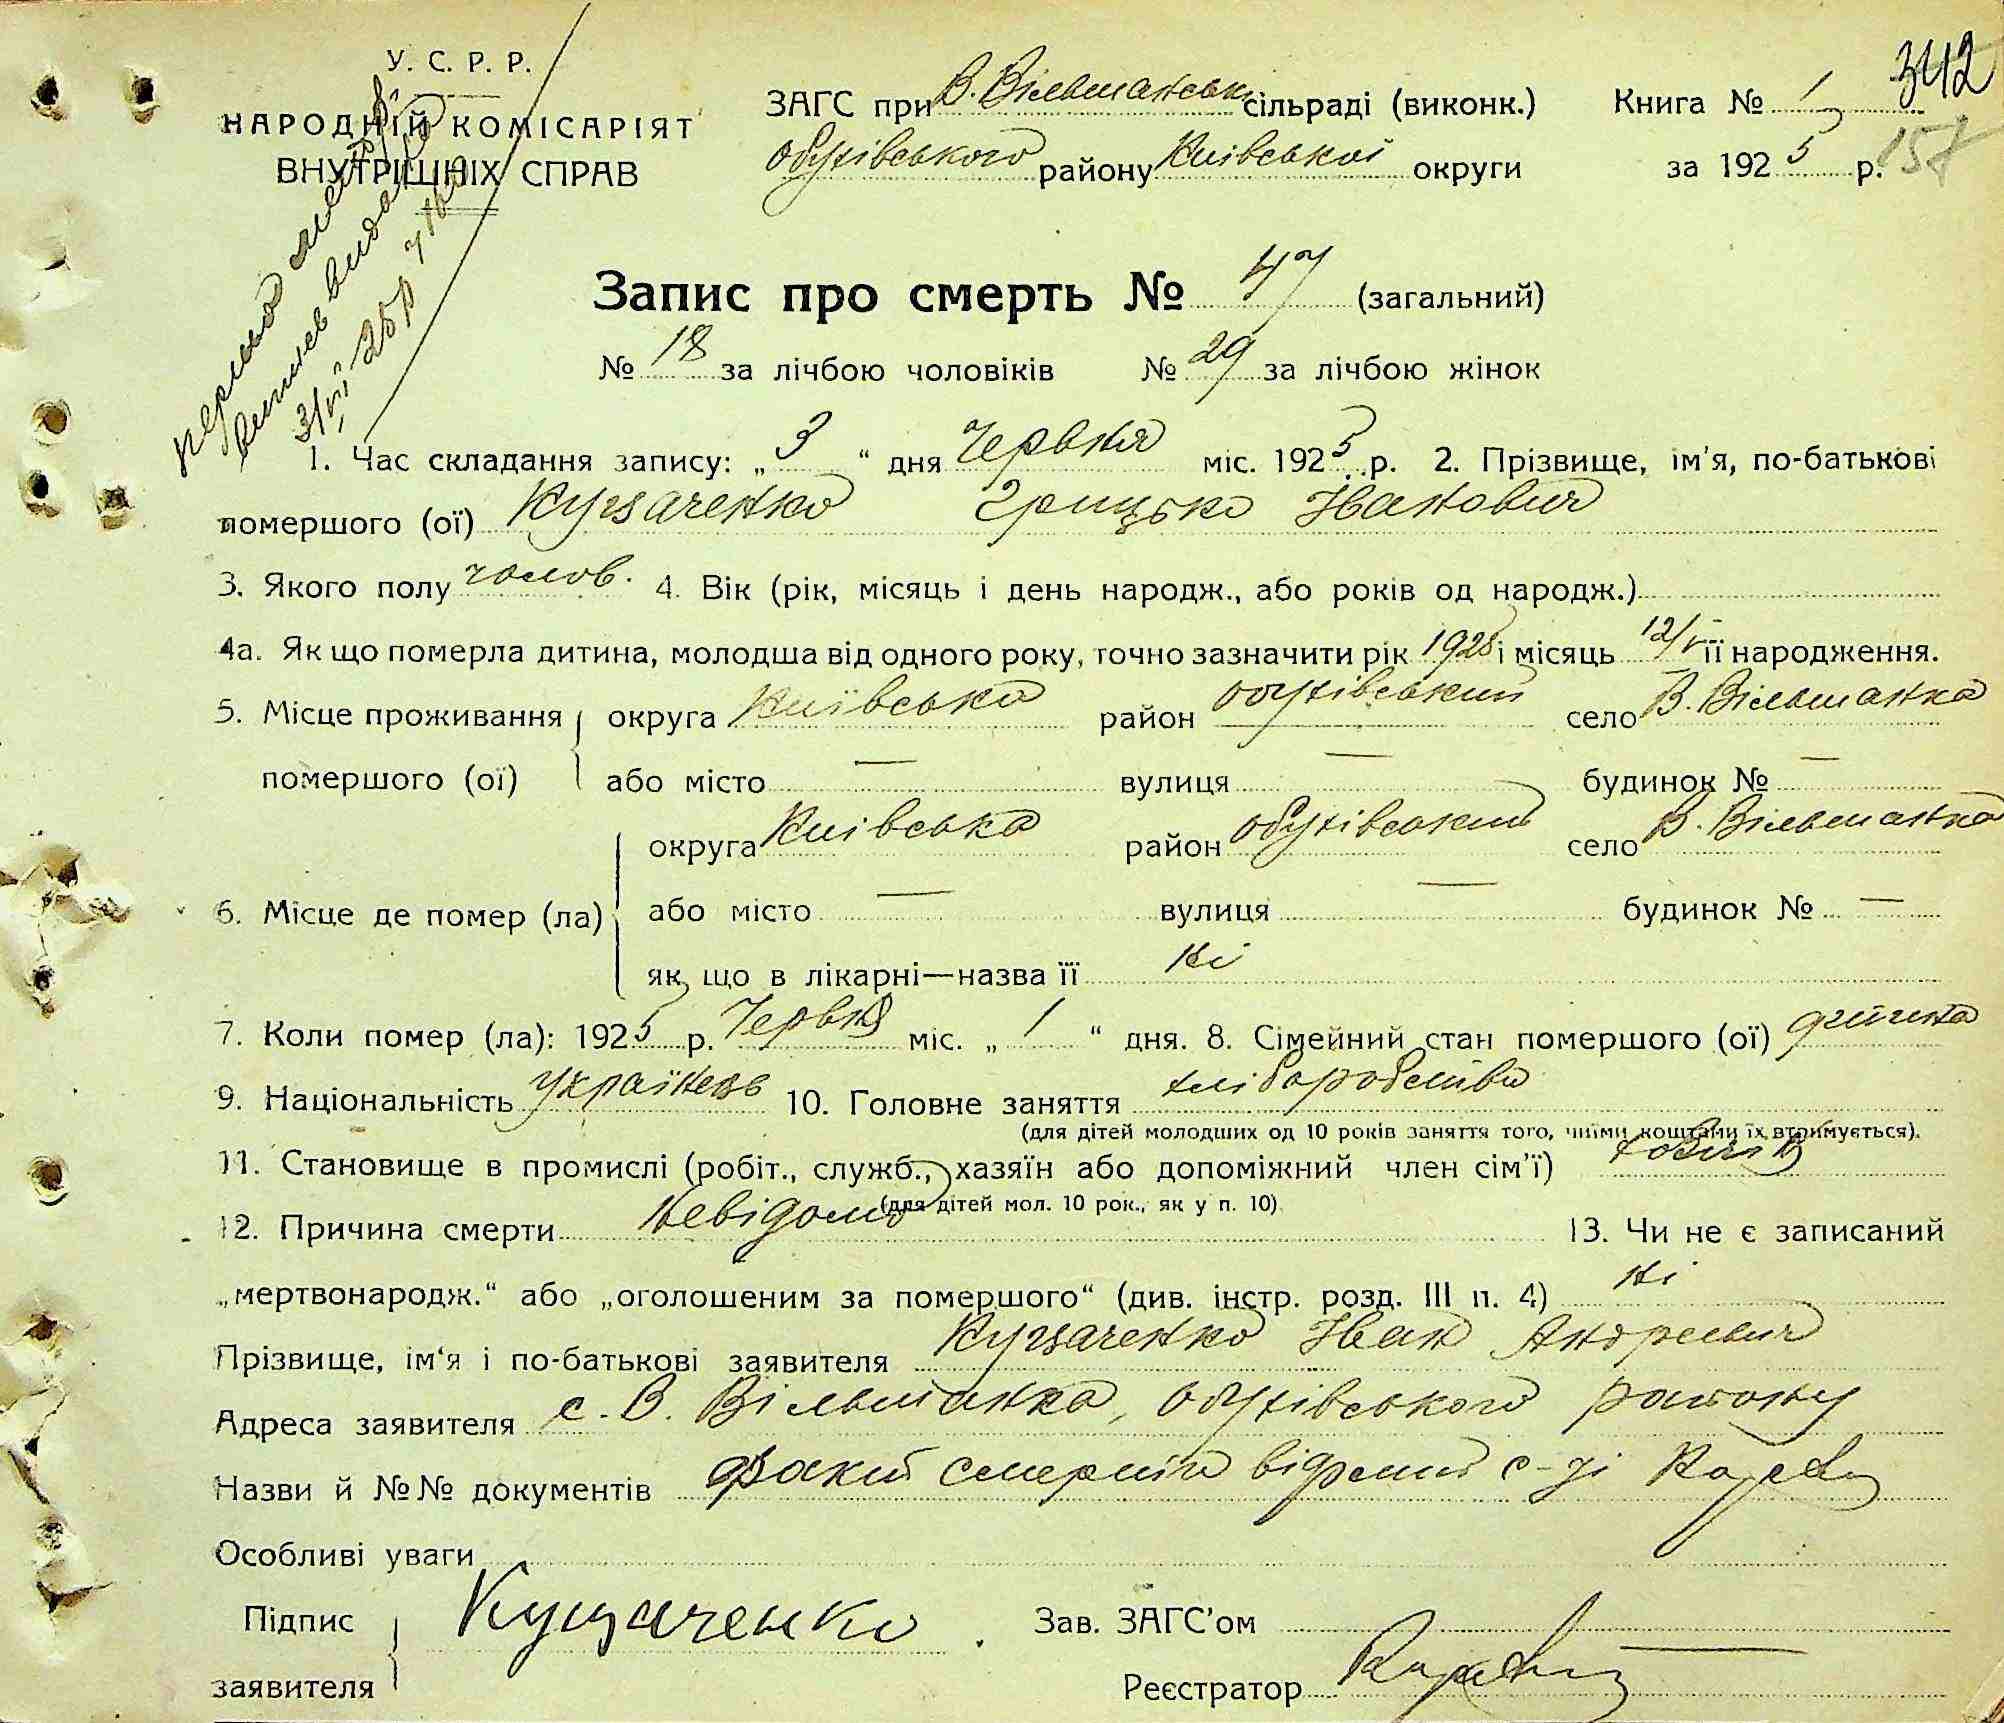 У. С. Р. Р.
НАРОДНІЙ КОМІСАРІЯТ
ВНУТРІШНІХ СПРАВ
ЗАГС при В. Вільшанські сільраді (виконк.)
Обухівського району Київської округи
Книга № 1
за 1925 р.
342
157
видав
3/VI 25 р.
Запис про смерть № 47 (загальний)
№ 18 за лічбою чоловіків № 29 за лічбою жінок
1. Час складання запису: „ 3 “ дня Червня міс. 1925 р. 2. Прізвище, ім'я, по-батькові
помершого (ої) Кущаченко Грицько Іванович
3. Якого полу чолов. 4. Вік (рік, місяць і день народж., або років од народж.)
4а. Як що померла дитина, молодша від одного року, точно зазначити рік 1925 і місяць 12/V її народження.
5. Місце проживання округа Київська район Обухівський село В. Вільшанка
помершого (ої) або місто — вулиця — будинок № —
округа Київська район Обухівський село В. Вільшанка
6. Місце де помер (ла) або місто — вулиця — будинок № —
як що в лікарні—назва її ні
7. Коли помер (ла): 1925 р. Червня міс. „ 1 “ дня. 8. Сімейний стан помершого (ої) дитина
9. Національність Українець 10. Головне заняття хліборобство
(для дітей молодших од 10 років заняття того, чиїми коштами їх втримується).
11. Становище в промислі (робіт., служб., хазяїн або допоміжний член сім'ї)
(для дітей мол. 10 рок., як у п. 10).
12. Причина смерти Невідомо 13. Чи не є записаний
„мертвонародж.“ або „оголошеним за помершого“ (див. інстр. розд. III п. 4) ні
Прізвище, ім'я і по-батькові заявителя Кущаченко Іван Андреевич
Адреса заявителя с. В. Вільшанка, Обухівського району
Назви й №№ документів факт смерти
Особливі уваги
Підпис заявителя Кущаченко
Зав. ЗАГС'ом
Реєстратор